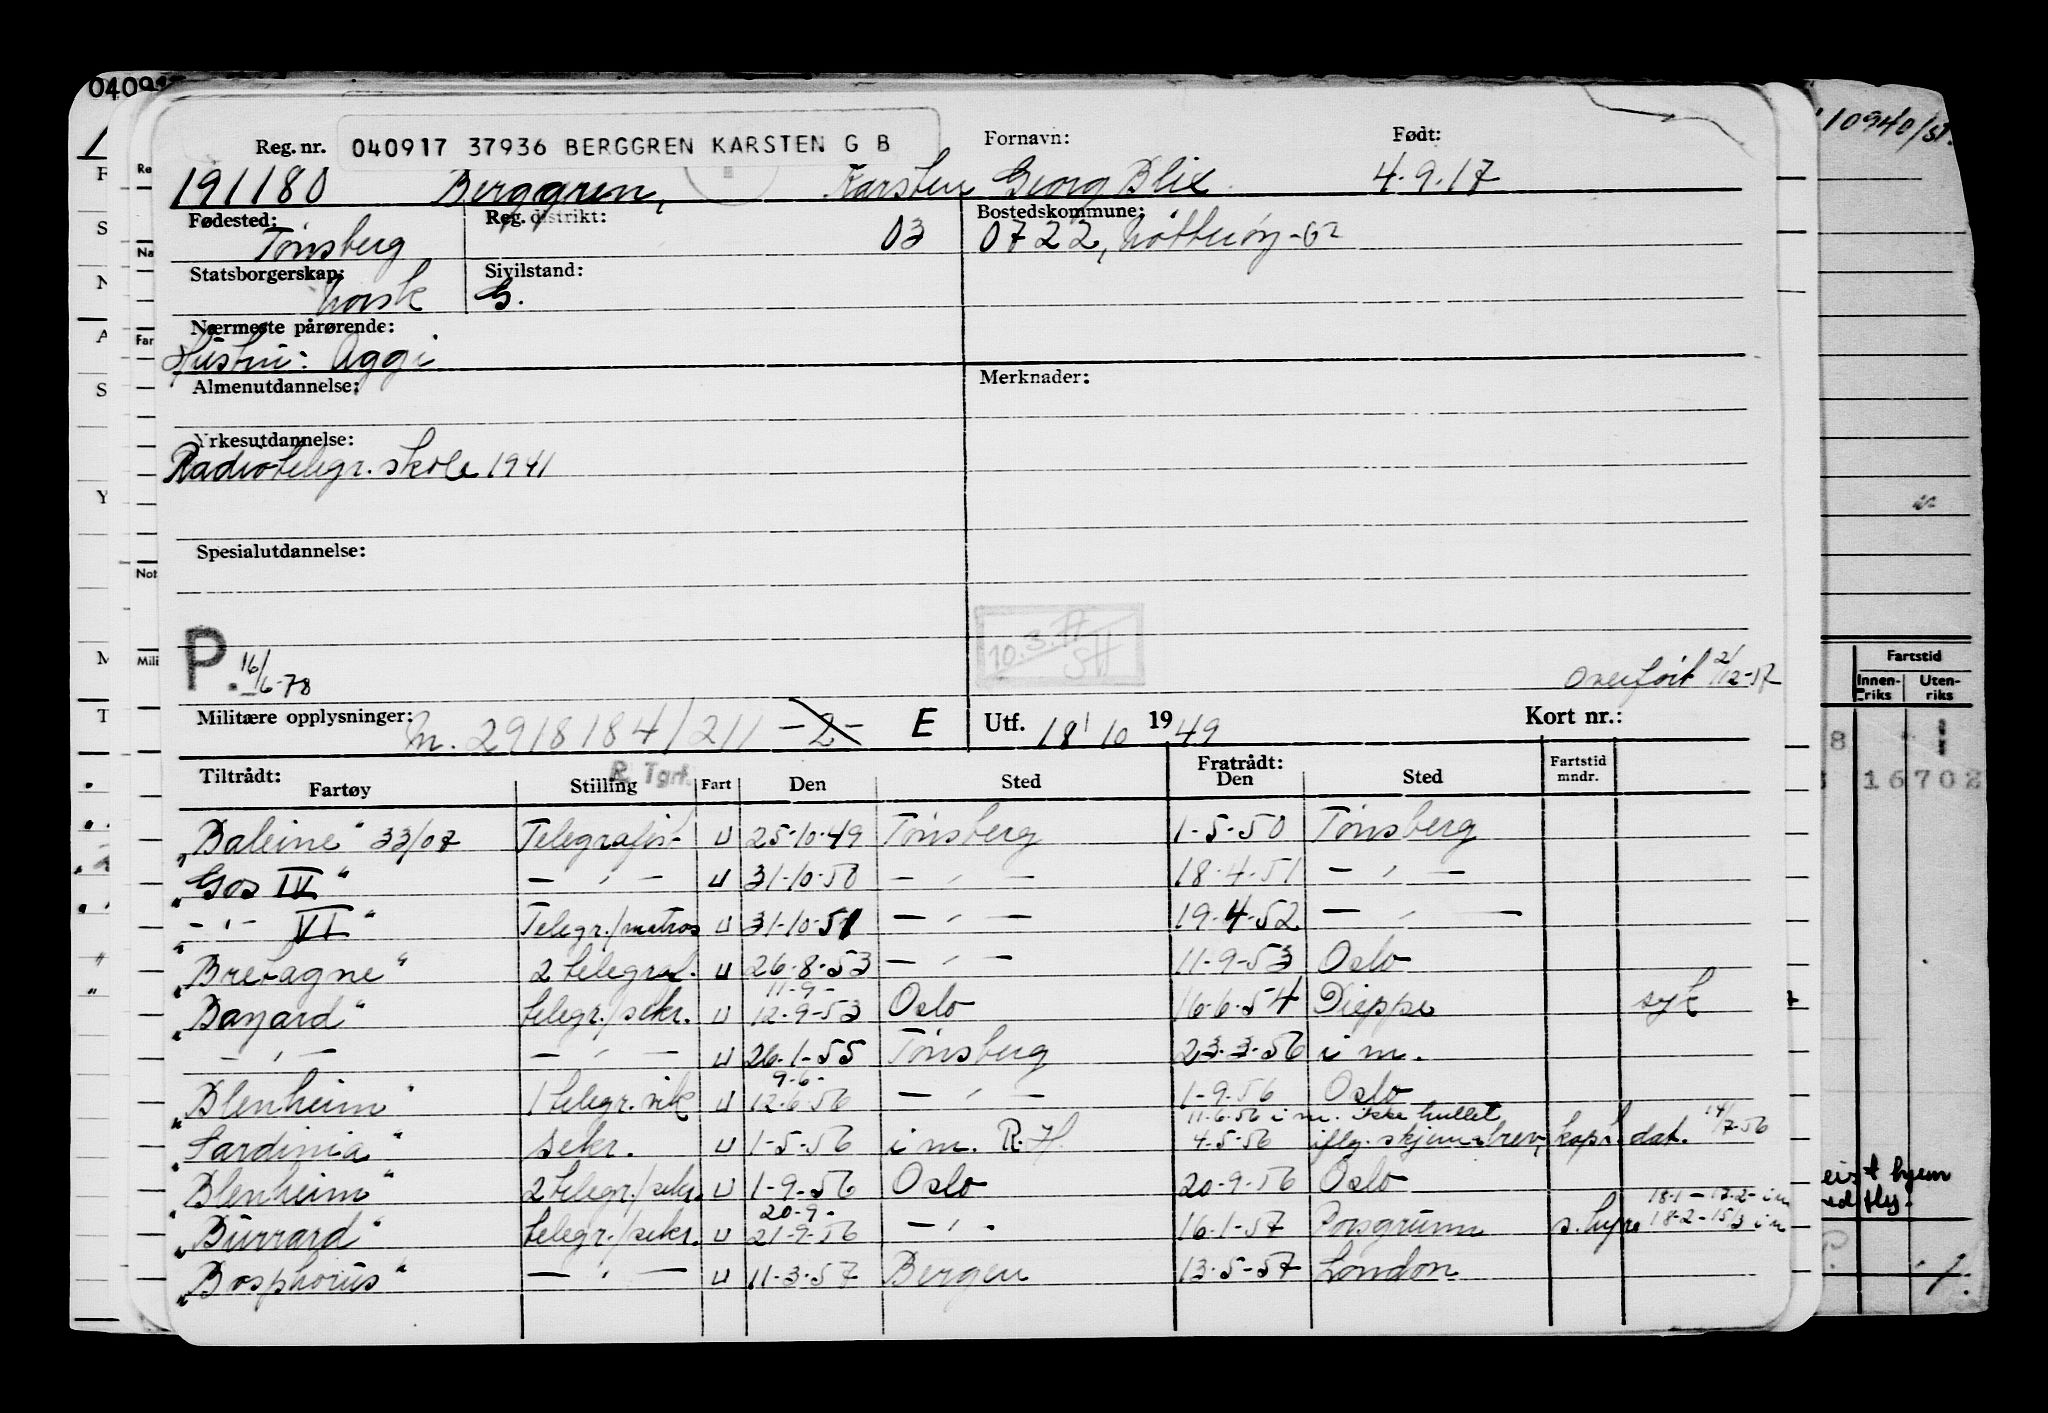 04091
110940/51.
Reg. nr. 040917 37936 BERGGREN KARSTEN G B Fornavn: Født:
191180 Berggren, Karsten Georg Blix 4.9.17
Fødested: Reg. distrikt: Bostedskommune:
Tönsberg 03 0722, Nötteröy-62
Statsborgerskap: Sivilstand:
Norsk G.
Nærmeste pårørende:
Hustru: Aggi
Almenutdannelse: Merknader:
Yrkesutdannelse:
Radiotelegr. skole 1941
Spesialutdannelse:
10.3.77
P. 16/6-78
Overfört 2/12-57
Militære opplysninger: M. 2918184/211 -2- E Utf. 18/10 1949 Kort nr.:
Tiltrådt: R. Tgrf. Fratrådt: Fartstid
Fartøy Stilling Fart Den Sted Den Sted mndr.
"Baleine" 33/07 Telegrafist U 25-10-49 Tönsberg 1-5-50 Tönsberg
"Gos IV" — " — U 31-10-50 — " — 18-4-51 — " —
"-"- VI" Telegr./matros U 31-10-51 — " — 19-4-52 — " —
"Bretagne" 2 telegraf. U 26-8-53 — " — 11-9-53 Oslo
11-9-
"Bayard" telegr./sekr. U 12-9-53 Oslo 16-6-54 Dieppe syk
— " — — " — U 26-1-55 Tönsberg 23-3-56 i m.
9-6-
"Blenheim" 1 telegr. vik U 12-6-56 — " — 1-9-56 Oslo
11-6-56 i m. ikke hullet
"Sardinia" sekr. U 1-5-56 i m. R.H. 4-5-56 iflg. skjema brev, kapt. dat. 14/7-56
"Blenheim" 2 telegr./sekr. U 1-9-56 Oslo 20-9-56 Oslo
20-9- 18-1-17-2- i m
"Burrard" telegr./sekr. U 21-9-56 — " — 16-1-57 Porsgrunn s. hyre 18-2-15/3 i m
"Bosphorus" — " — U 11-3-57 Bergen 13-5-57 London
Fartstid
Innen-riks Uten-riks
8
16702
reist hjem
med fly.